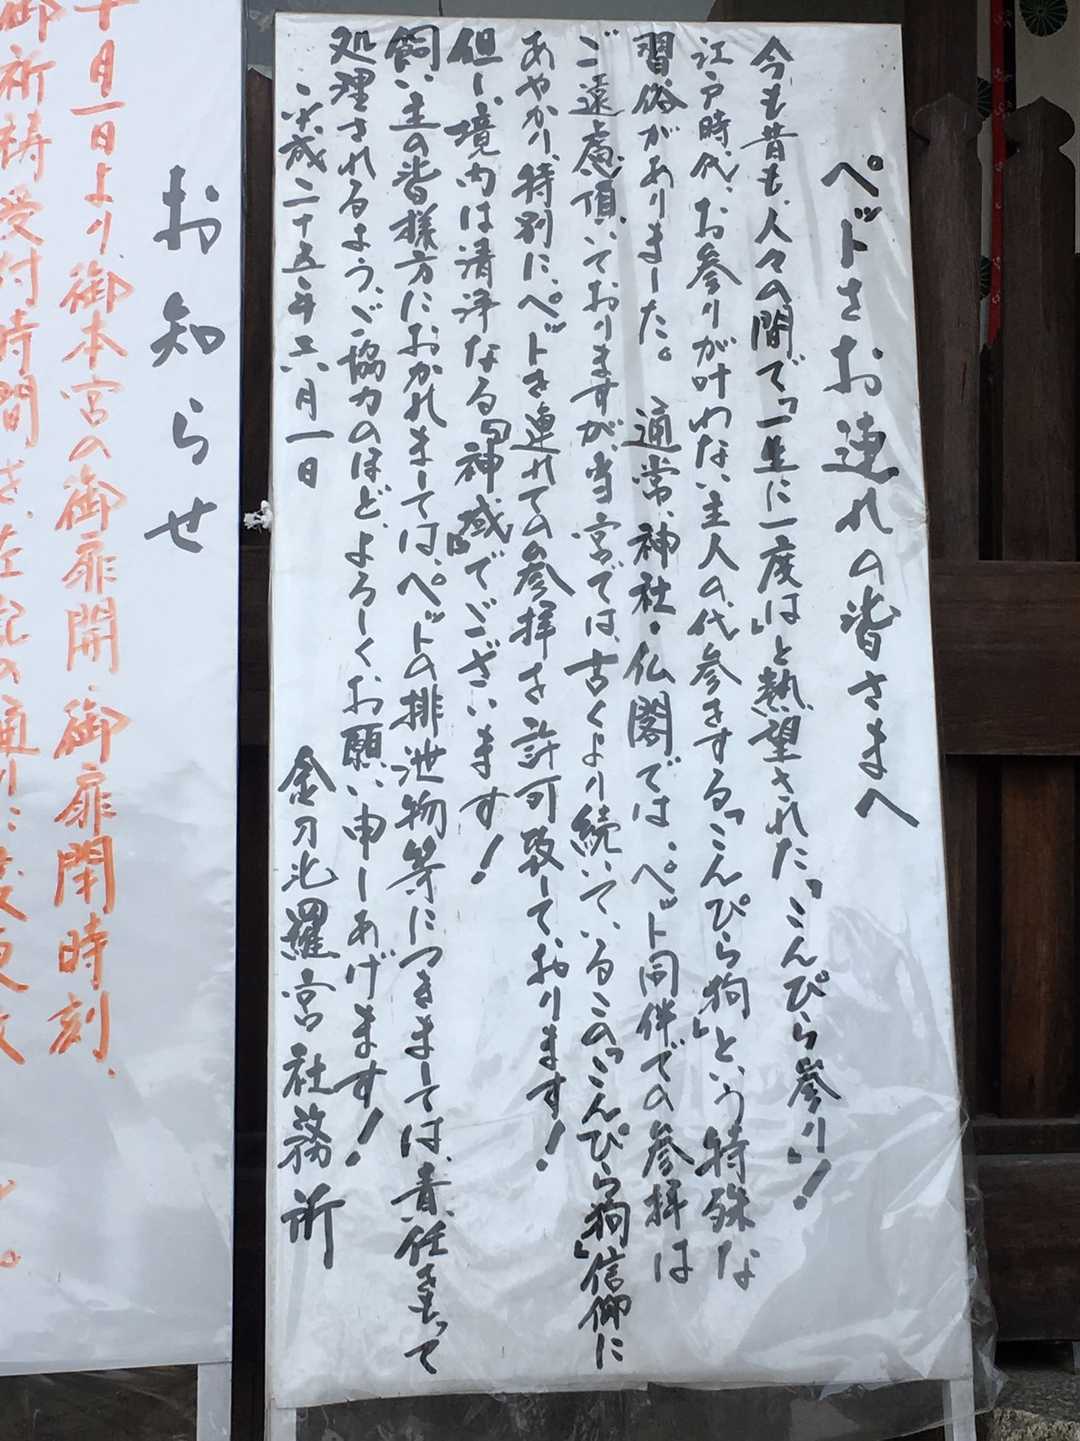 ペットをお連れの皆さまへ
今も昔も、人々の間で「一生に一度は」と熱望された「こんぴら参り」！
江戸時代、お参りが叶わない主人の代参をする「こんぴら狗」という特殊な
習俗がありました。通常、神社・仏閣では、ペット同伴での参拝は
ご遠慮頂いておりますが当宮では、古くより続いているこの「こんぴら狗」信仰に
あやかり、特別に、ペットを連れての参拝を許可致しております！
但し、境内は清浄なる『神域』でございます！
飼い主の皆様方におかれましては、ペットの排泄物等につきましては、責任をもって
処理されるよう、ご協力のほど、よろしくお願い申しあげます！
平成二十五年六月一日
金刀比羅宮社務所
お知らせ
十月一日より、御本宮の御扉開・御扉閉時刻、
御祈祷受付時間を、左記の通りに変更致